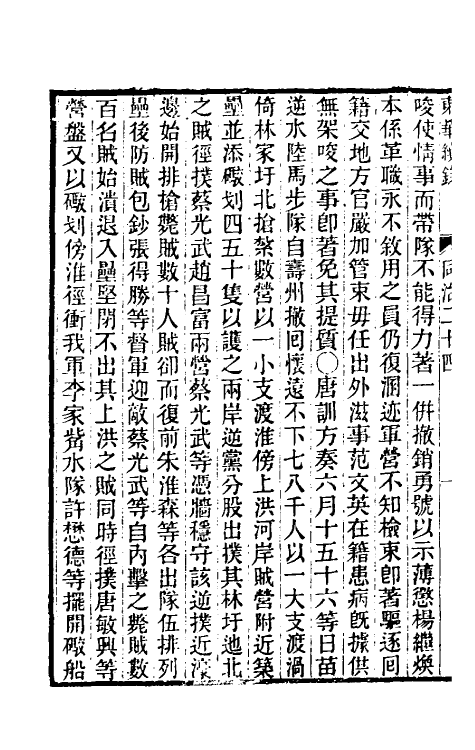 東華續錄 同治二十四
唆使情事而帶隊不能得力著一併撤銷勇號以示薄懲楊繼煥
本係革職永不敘用之員仍復溷迹軍營不知檢束卽著驅逐回
籍交地方官嚴加管束毋任出外滋事范文英在籍患病旣據供
無架唆之事卽著免其提質〇唐訓方奏六月十五十六等日苗
逆水陸馬步隊自壽州撤回懷遠不下七八千人以一大支渡渦
倚林家圩北搶築數營以一小支渡淮傍上洪河岸賊營附近築
壘並添礮划四五十隻以護之兩岸逆黨分股出撲其林圩迤北
之賊徑撲蔡光武趙昌富兩營蔡光武等憑牆穩守該逆撲近濠
邊始開排搶斃賊數十人賊卻而復前朱淮森等各出隊伍排列
壘後防賊包鈔張得勝等督軍迎敵蔡光武等自內擊之斃賊數
百名賊始潰退入壘堅閉不出其上洪之賊同時徑撲唐敏興等
營盤又以礮划傍淮徑衝我軍李家觜水隊許懋德等擺開礮船